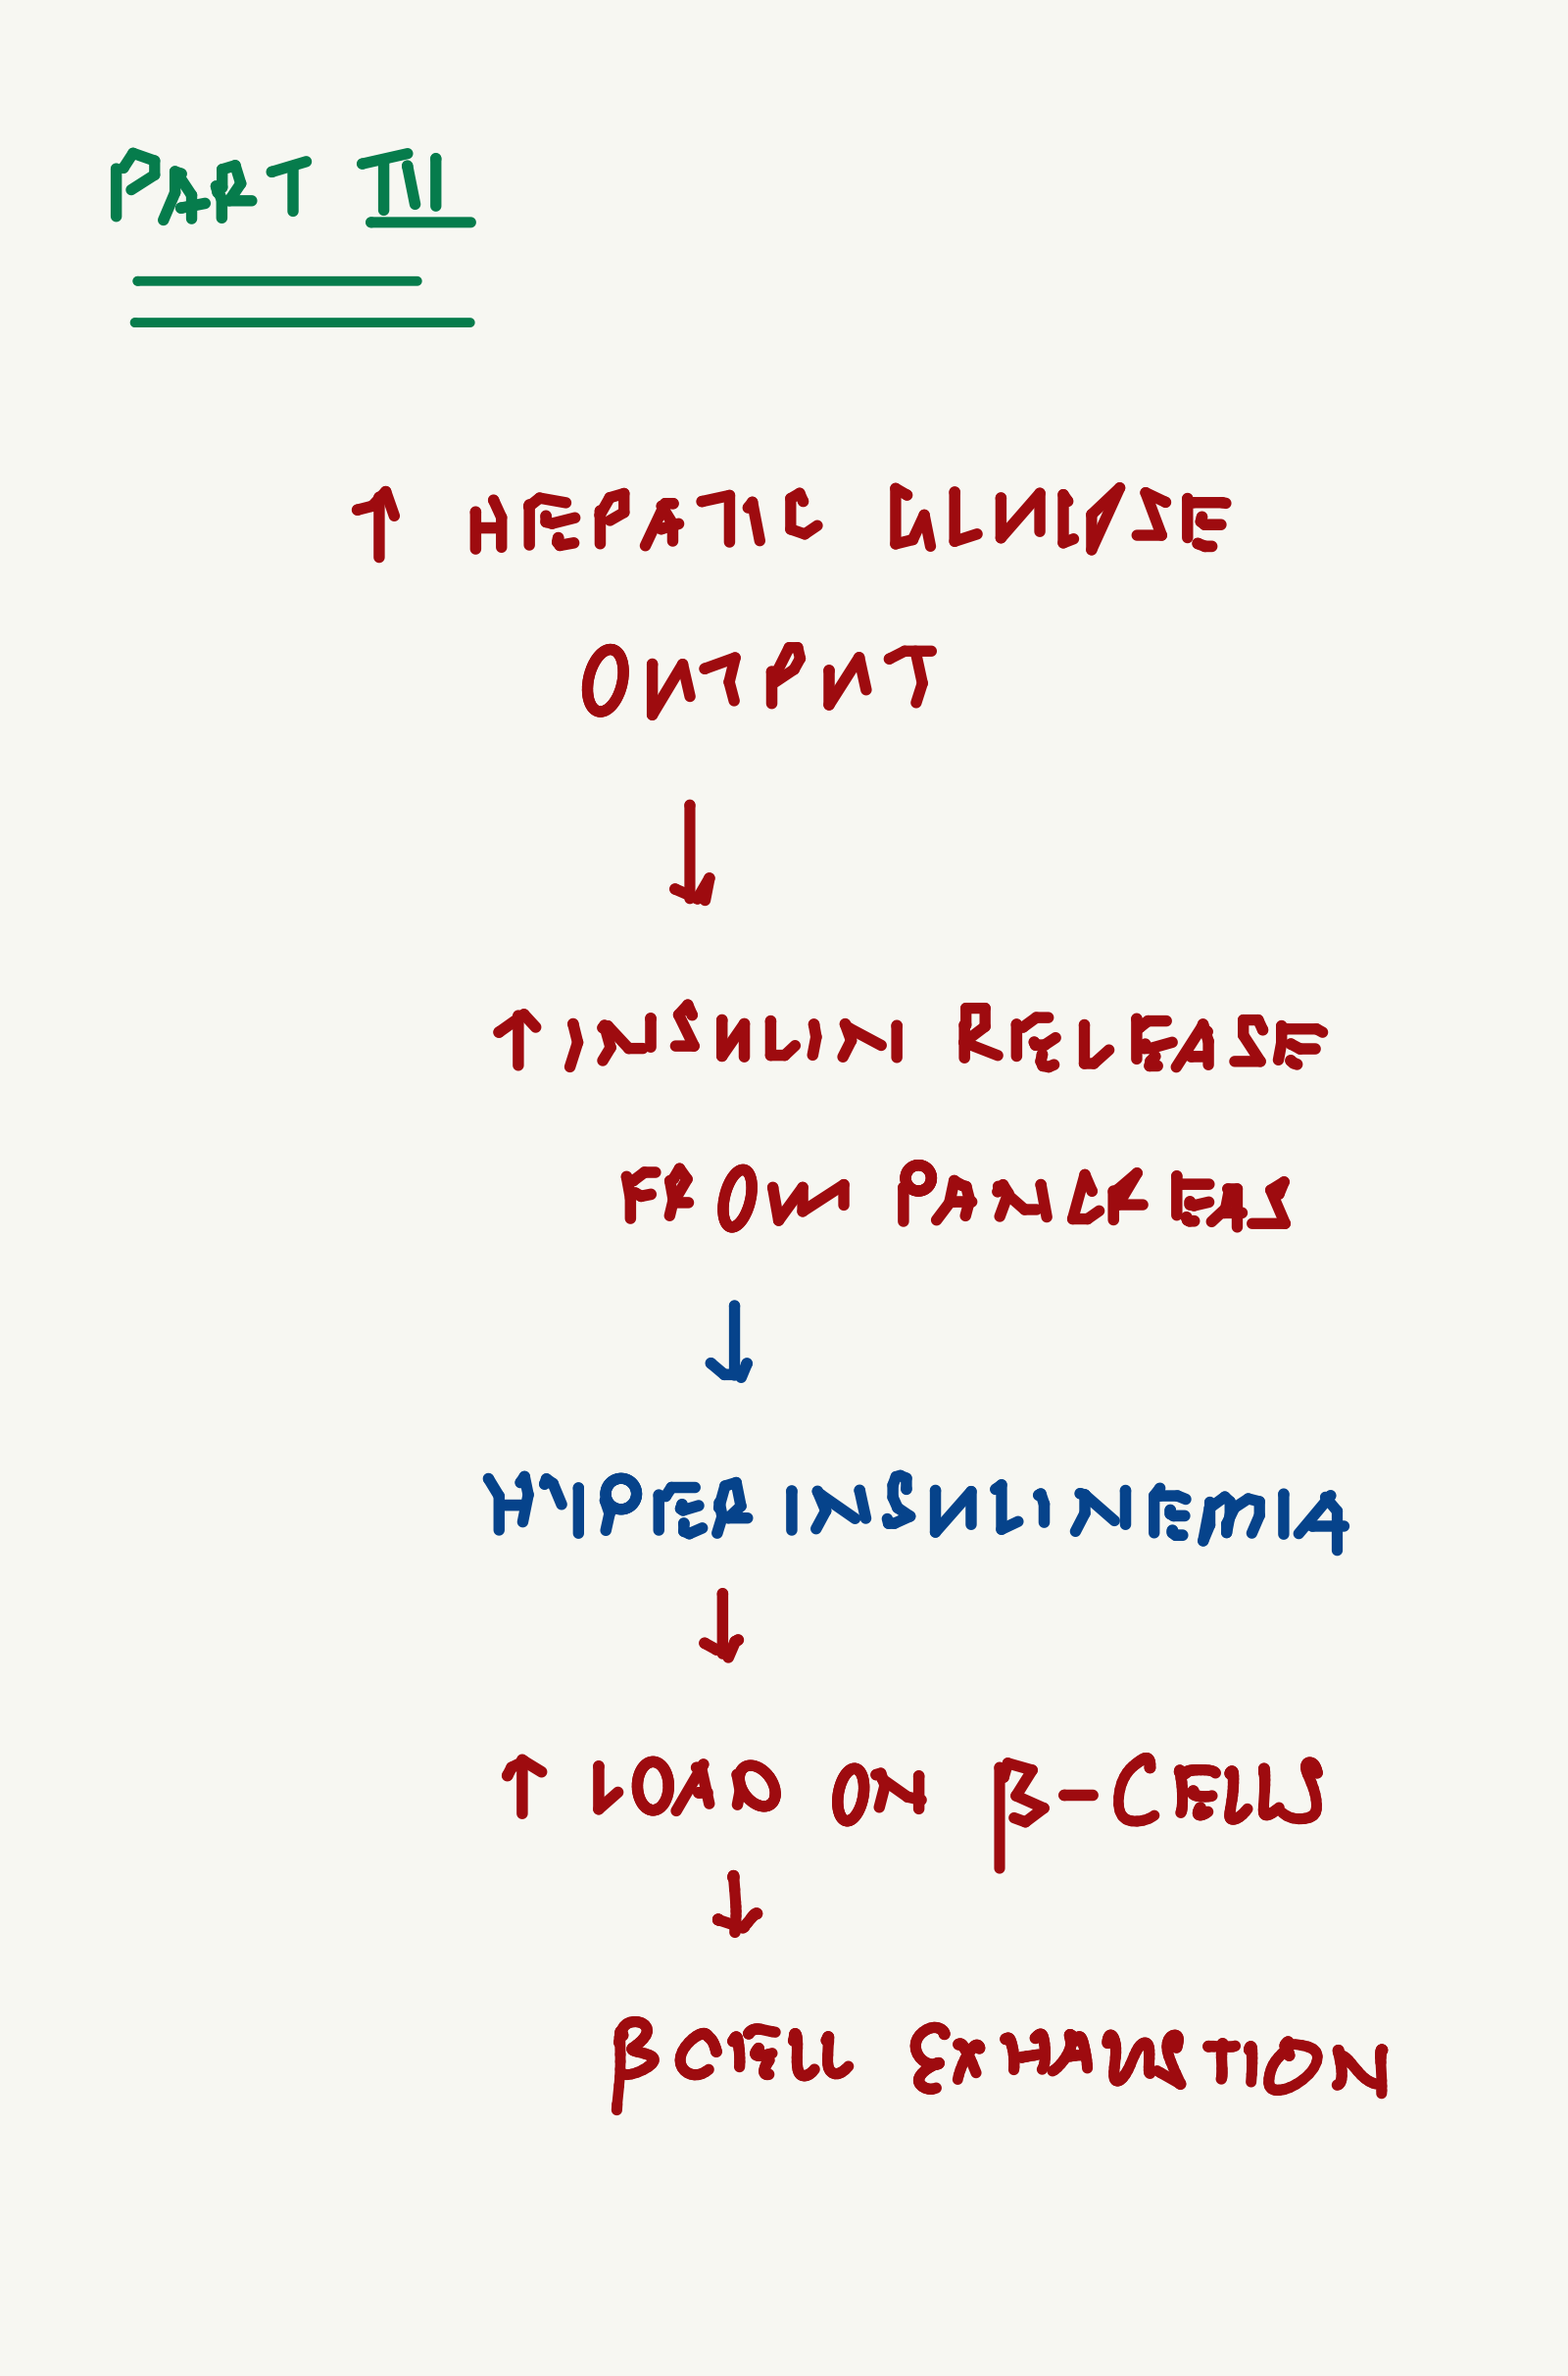 PART III
↑ HEPATIC GLUCOSE
OUTPUT
↓
↑ INSULIN RELEASE
FROM PANCREAS
↓
HYPERINSULINEMIA
↓
↑ LOAD ON β-CELLS
↓
β CELL EXHAUSTION